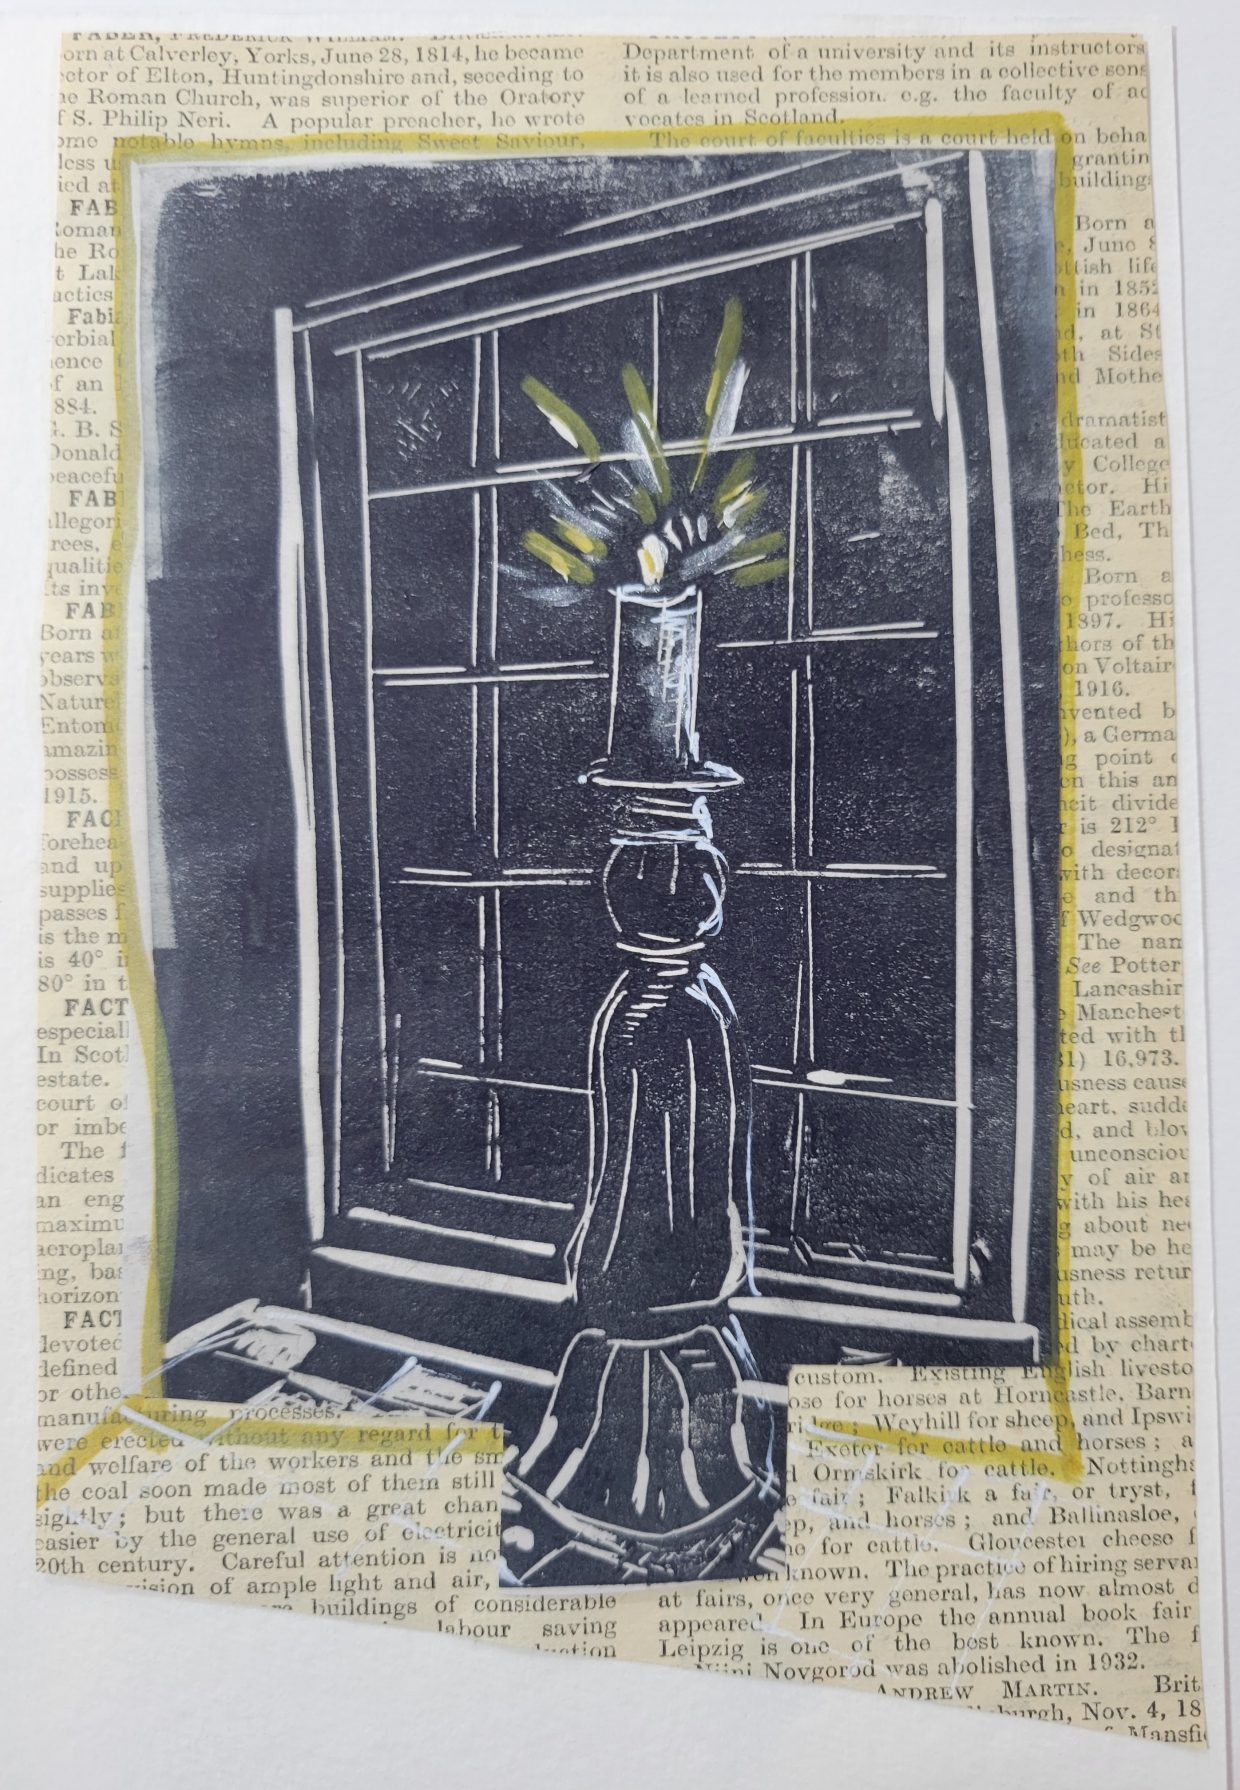 FABER, FREDERICK WILLIAM.
orn at Calverley, Yorks, June 28, 1814, he became
ctor of Elton, Huntingdonshire and, seceding to
he Roman Church, was superior of the Oratory
f S. Philip Neri. A popular preacher, he wrote
ome notable hymns, including Sweet Saviour,
less u
ied at
FAB
Roman
he Ro
t Lak
actics
Fabi
erbial
ience f
f an
884.
G. B. S
Donald
peacefu
FAB
allegori
rees, e
qualitie
Its inve
FAB
Born a
years w
observa
Nature
Entomo
amazin
possess
1915.
FAC
forehea
and up
supplies
passes f
is the m
is 40° i
80° in t
FACT
especial
In Scot
estate.
court of
or imbe
The f
dicates
an eng
maximu
aeroplan
ing, bas
horizon
FACT
devoted
defined
or othe
manufacturing processes.
were erected without any regard for t
and welfare of the workers and the sm
the coal soon made most of them still
sightly; but there was a great chan
easier by the general use of electricit
20th century. Careful attention is no
vision of ample light and air,
buildings of considerable
labour saving
uction
Department of a university and its instructors
it is also used for the members in a collective sens
of a learned profession. e.g. the faculty of ad
vocates in Scotland.
The court of faculties is a court held on beha
grantin
buildings
Born a
, June 8
ottish life
in 1852
in 1864
d, at St
th Sides
nd Mothe
dramatist
ducated a
y College
ctor. Hi
The Earth
Bed, Th
hess.
Born a
o professo
1897. Hi
hors of th
on Voltair
1916.
nvented b
), a Germa
g point o
en this an
heit divide
r is 212° F
o designat
with decor
e and th
f Wedgwoo
The nam
See Potter
Lancashir
Manchest
ted with th
31) 16,973.
usness cause
heart, sudde
d, and blow
unconsciou
y of air an
with his hea
g about nee
may be he
usness retur
uth.
dical assemb
ed by charte
custom. Existing English livesto
ose for horses at Horncastle, Barn
ridge; Weyhill for sheep, and Ipswi
Exeter for cattle and horses; a
d Ormskirk for cattle. Nottingha
e fair; Falkirk a fair, or tryst, f
ep, and horses; and Ballinasloe,
ne for cattle. Gloucester cheese f
known. The practice of hiring serva
at fairs, once very general, has now almost d
appeared. In Europe the annual book fair
Leipzig is one of the best known. The f
Nijni Novgorod was abolished in 1932.
ANDREW MARTIN. Brit
dinburgh, Nov. 4, 18
f Mansfi